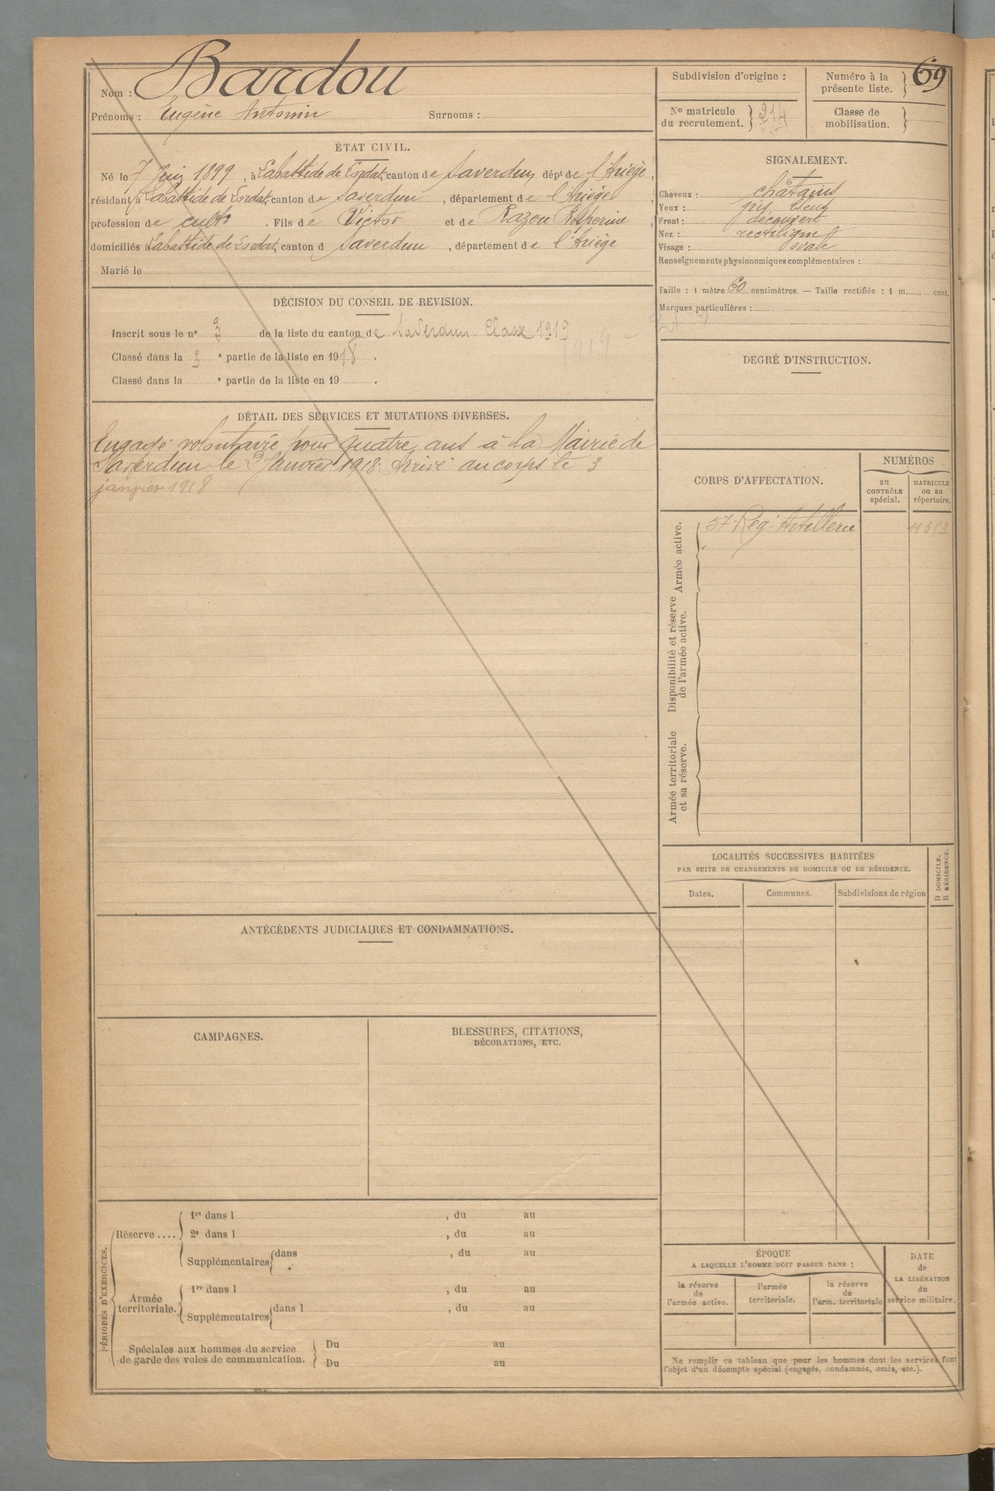 Nom : Bardou
Prénoms : Eugène Antonin Surnoms :
ÉTAT CIVIL.
Né le 7 Juin 1899, à Labastide de Lordat, canton de Saverdun, dépt de l'Ariège,
résidant à Labastide de Lordat, canton de Saverdun, département de l'Ariège,
profession de cultr. Fils de Victor et de Razou
domiciliés à Labastide de Lordat, canton d Saverdun, département de l'Ariège
Marié le
DÉCISION DU CONSEIL DE REVISION.
Inscrit sous le n° 3 de la liste du canton de Saverdun Classe 1919
1919
Classé dans la 3 e partie de la liste en 1918.
Classé dans la e partie de la liste en 19 .
DÉTAIL DES SERVICES ET MUTATIONS DIVERSES.
Engagé volontaire pour quatre ans à la Mairie de
Saverdun le 2 Janvier 1918. Arrivé au corps le 3
janvier 1918
ANTÉCÉDENTS JUDICIAIRES ET CONDAMNATIONS.
CAMPAGNES.
BLESSURES, CITATIONS,
DÉCORATIONS, ETC.
PÉRIODES D'EXERCICES.
Réserve ....
1re dans l , du au
2e dans l , du au
Supplémentaires dans , du au
Armée territoriale.
1re dans l , du au
Supplémentaires dans l , du au
Spéciales aux hommes du service
de garde des voies de communication.
Du au
Du au
Subdivision d'origine :
Numéro à la
présente liste.
69
No matricule
du recrutement.
214
Classe de
mobilisation.
SIGNALEMENT.
Cheveux : châtains
Yeux : gris bleus
Front : découvert
Nez : rectiligne
Visage : ovale
Renseignements physionomiques complémentaires :
Taille : 1 mètre 60 centimètres. — Taille rectifiée : 1 m. cent.
Marques particulières :
DEGRÉ D'INSTRUCTION.
CORPS D'AFFECTATION.
NUMÉROS
au
CONTRÔLE
spécial.
MATRICULE
ou au
répertoire.
Armée active.
57 Rég. Artillerie
Disponibilité et réserve
de l'armée active.
Armée territoriale
et sa réserve.
LOCALITÉS SUCCESSIVES HABITÉES
PAR SUITE DE CHANGEMENTS DE DOMICILE OU DE RÉSIDENCE.
Dates. Communes. Subdivisions de région
D DOMICILE.
R RÉSIDENCE.
ÉPOQUE
A LAQUELLE L'HOMME DOIT PASSER DANS :
la réserve
de
l'armée active.
l'armée
territoriale.
la réserve
de
l'arm. territoriale
DATE
de
LA LIBÉRATION
du
service militaire.
Ne remplir ce tableau que pour les hommes dont les services font
l'objet d'un décompte spécial (engagés, condamnés, omis, etc.).